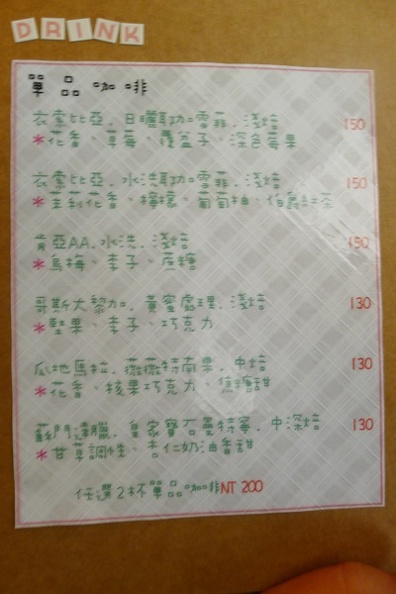 DRINK
單品咖啡
衣索比亞.日曬耶加雪菲.淺焙 150
*花香、草莓、覆盆子、深色莓果
衣索比亞.水洗耶加雪菲.淺焙 150
*茉莉花香、檸檬、葡萄柚、伯爵紅茶
肯亞AA.水洗.淺焙 150
*烏梅、李子、蔗糖
哥斯大黎加.黃蜜處理.淺焙 130
*堅果、李子、巧克力
瓜地馬拉.薇薇特南果.中焙 130
*花香、核果巧克力、焦糖甜
蘇門答臘.皇家寶石曼特寧.中深焙 130
*甘草調性、杏仁奶油香甜
任選2杯單品咖啡NT 200